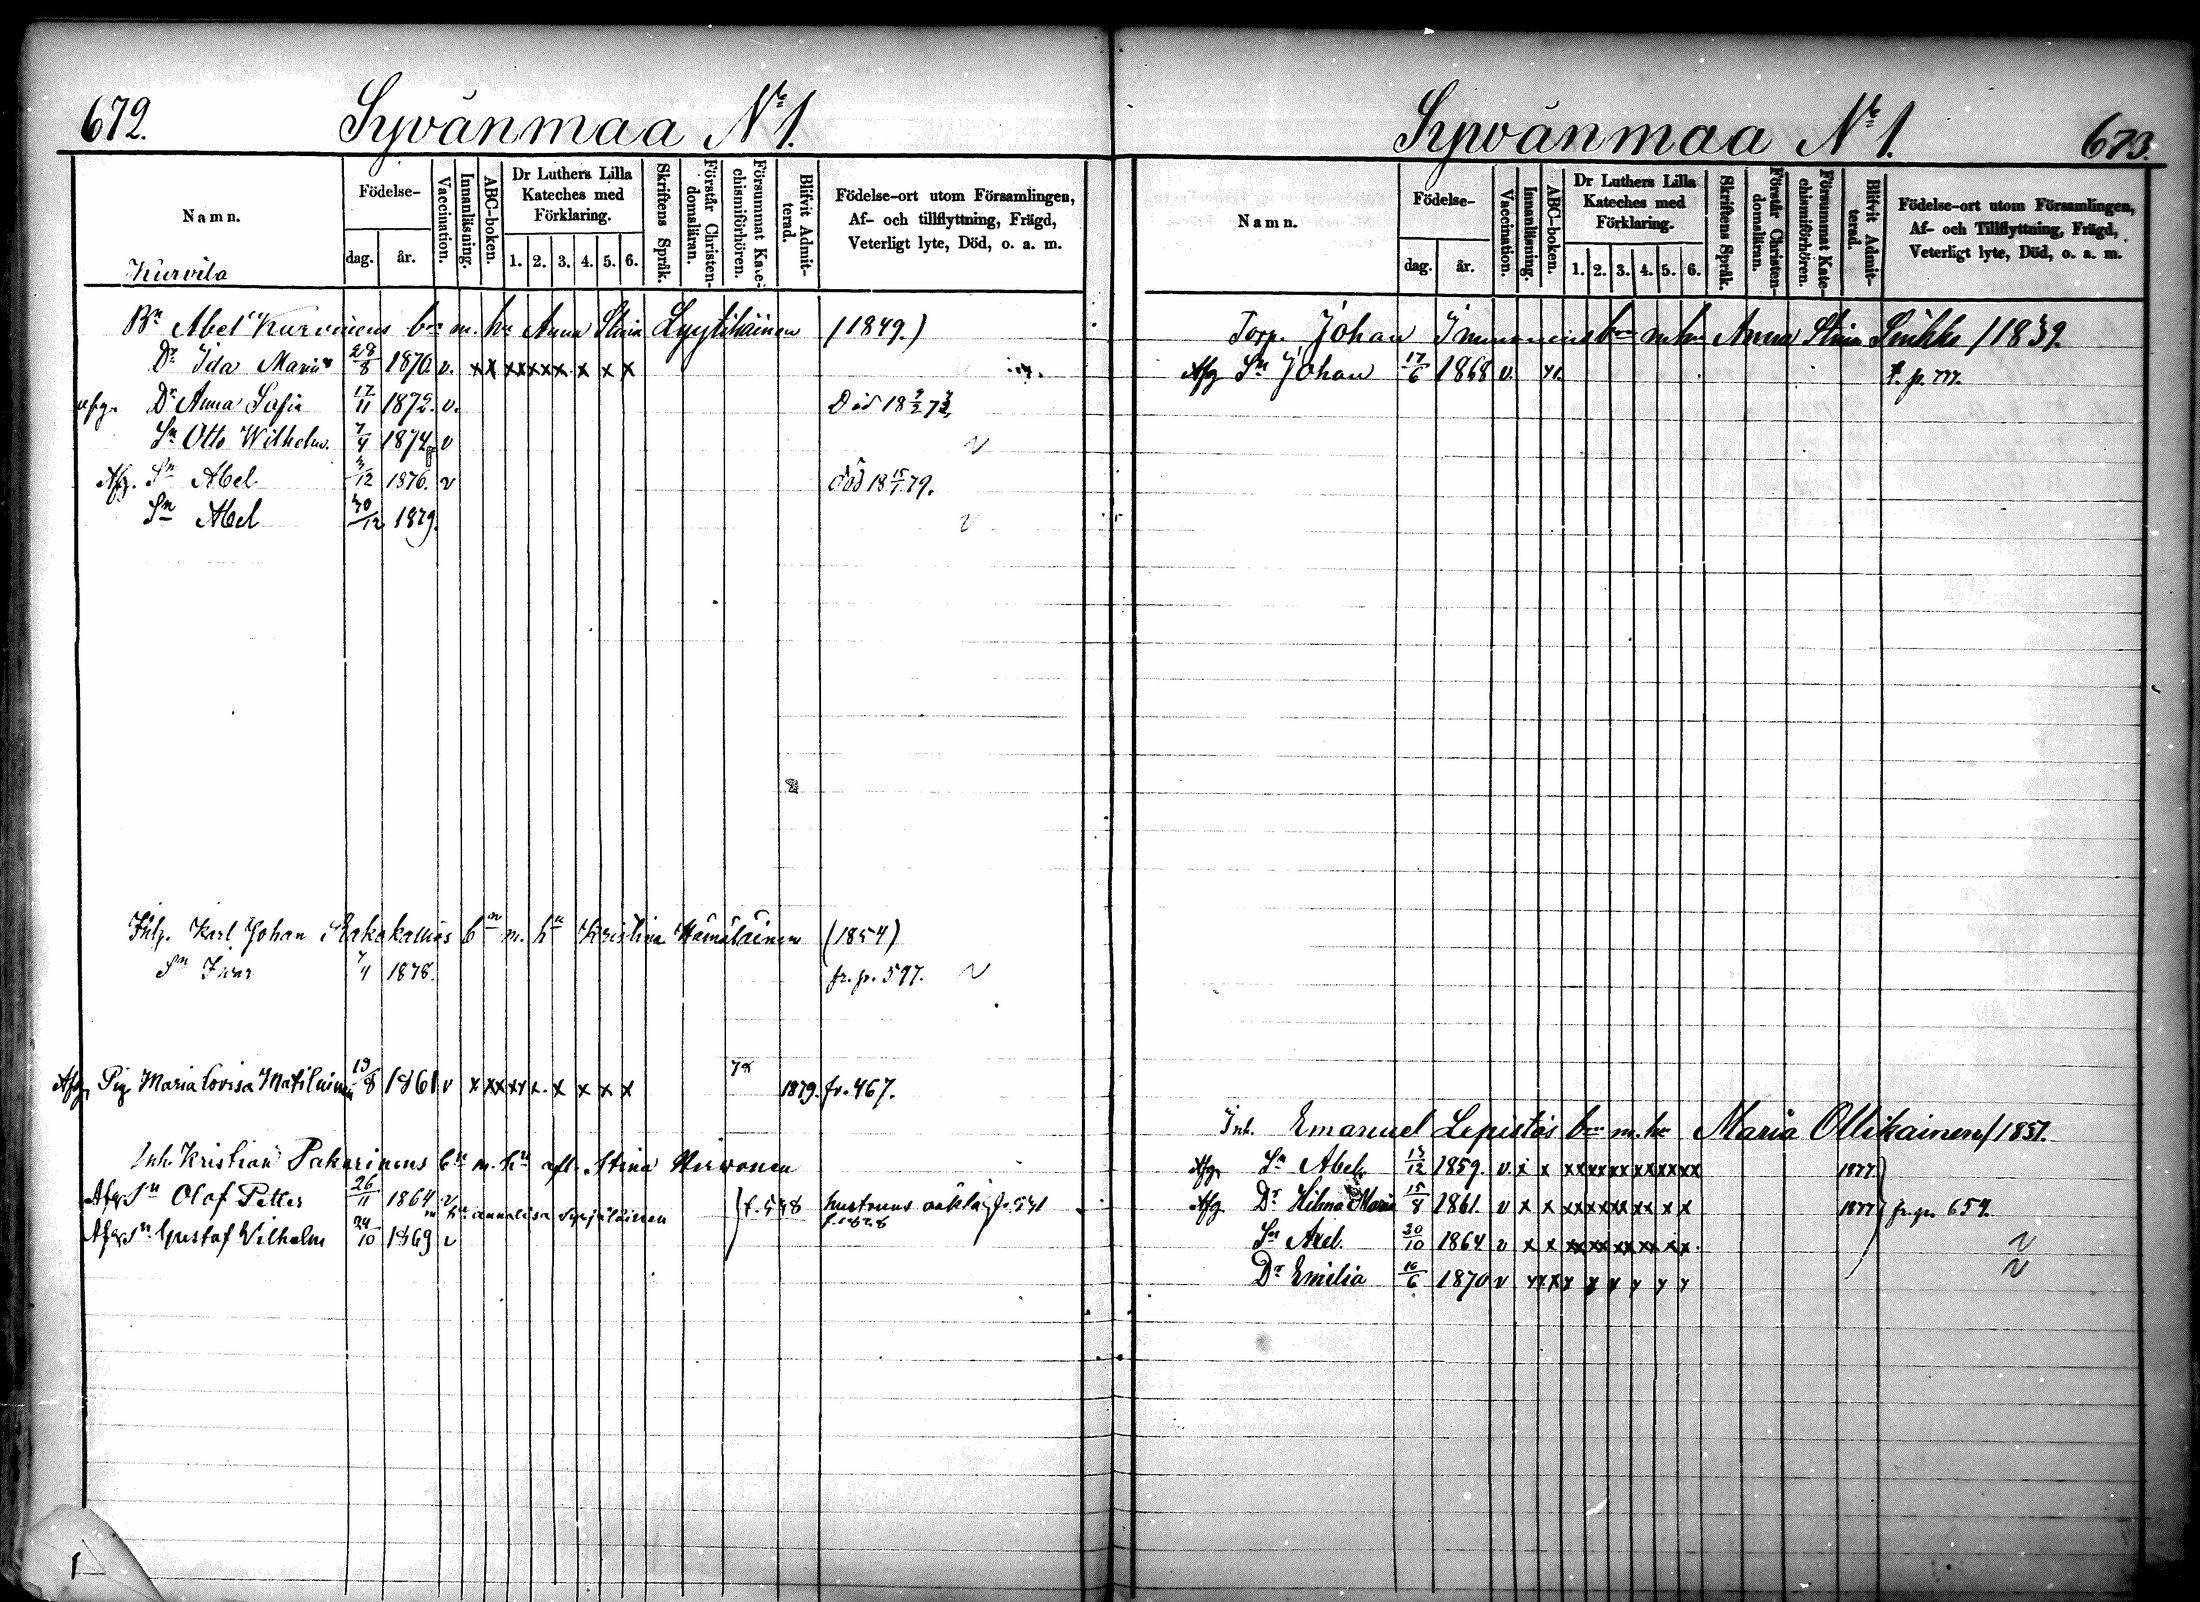 672.
Syvänmaa No 1.
Namn.
Födelse-
dag.
år.
Vaccination.
Innanläsning.
ABC-boken.
Dr Luthers Lilla Kateches med Förklaring.
1. 2. 3. 4. 5. 6.
Skriftens Språk.
Förstår Christen-domsläran.
Försummat Kate-chismiförhören.
Blifvit Admit-terad.
Födelse-ort utom Församlingen,
Af- och tillflyttning, Frägd,
Veterligt lyte, Död, o. a. m.
Kurvila
Bn Abel Kurvinens bn m. hu Anna Stina Lyytikäinen (1849.)
Dr Ida Maria 28/8 1870. v. x x x x x x x x x
afg. Dr Anna Sofia 17/11 1872. v. Död 18 9/2 73,
Sn Otto Wilhelm. 7/4 1874 v
Afg. Sn Abel /12 1876. v död 18 15/1 79.
Sn Abel 30/12 1879.
Inh. Karl Johan bn m. hu Kristina Hämäläinen (1854)
Sn Ivar 7/4 1878. fr. p. 597.
Afg. Pig Maria Lovisa 19/8 1861 v x x x x x x x x x 1879. fr. 467.
Inh. Kristian Pakarinens bn m. hu afl. Stina Hirvonen
Afg Sn Olof Petter 26/11 1864 v hu annalisa f. 548 hustruns f. 1828
Afg Sn Gustaf Vilhelm 24/10 1869 v
Syvänmaa No 1.
673.
Namn.
Födelse-
dag.
år.
Vaccination.
Innanläsning.
ABC-boken.
Dr Luthers Lilla Kateches med Förklaring.
1. 2. 3. 4. 5. 6.
Skriftens Språk.
Förstår Christen-domsläran.
Försummat Kate-chismiförhören.
Blifvit Admit-terad.
Födelse-ort utom Församlingen,
Af- och Tillflyttning, Frägd,
Veterligt lyte, Död, o. a. m.
Torp. Johan Immonens bn m hu Anna Stina /1839.
Afg Sn Johan 17/6 1868 v.
Inh. Emanuel Lepistös bn m. hu Maria Ollikainen /1851.
Afg. Sn Abel 13/12 1859. v. x x x x x x x x x x x 1877
Afg Dr Hilma Maria 15/8 1861. v x x x x x x x x x x 1877 fr. p. 659.
Sn Axel. 30/10 1864 v x x x x x x x x x x
Dr Emilia 16/6 1870 v x x x x x x x x x